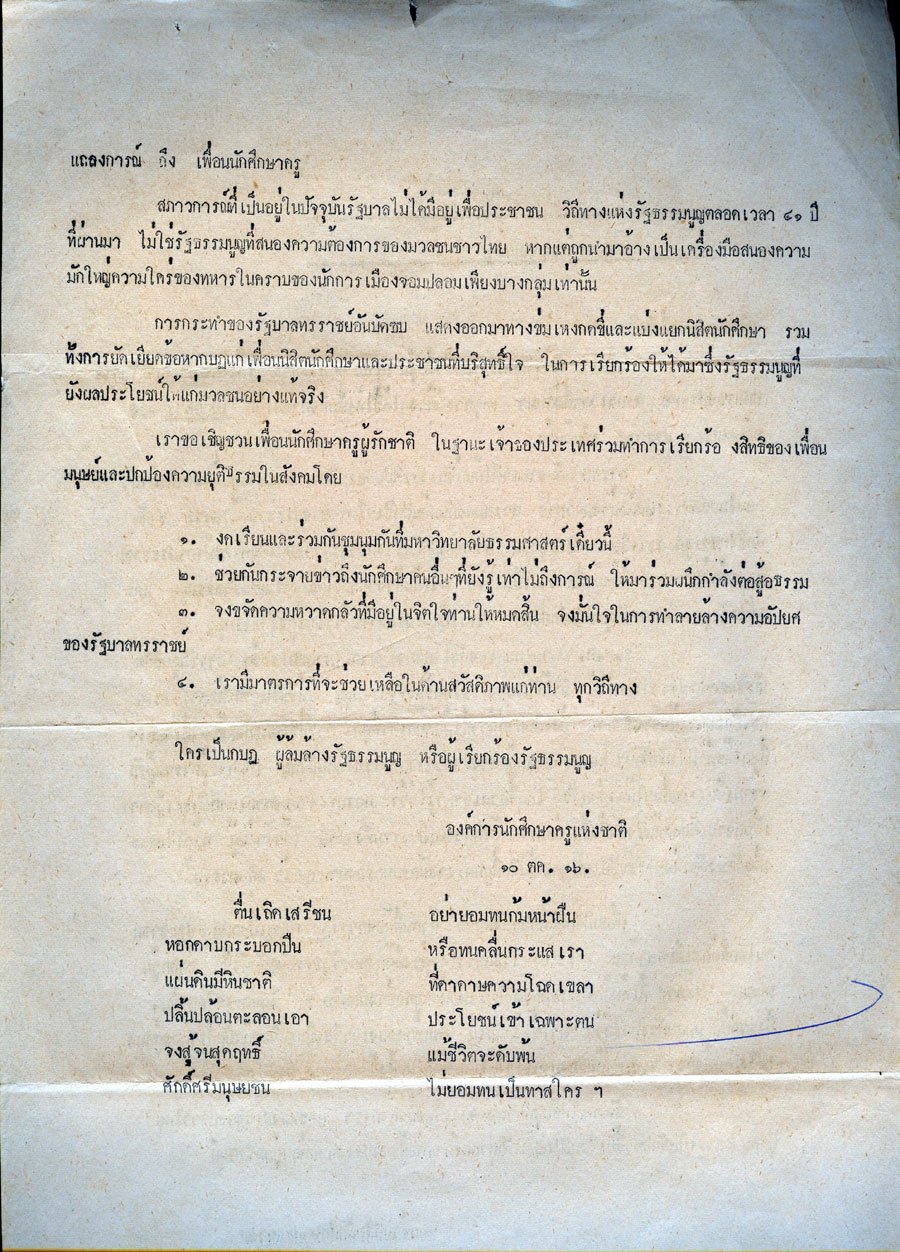 แถลงการณ์ ถึง เพื่อนนักศึกษาครู
สภาวการณ์ที่เป็นอยู่ในปัจจุบันรัฐบาลไม่ได้มีอยู่เพื่อประชาชน วิถีทางแห่งรัฐธรรมนูญตลอดเวลา ๔๑ ปี
ที่ผ่านมา ไม่ใช่รัฐธรรมนูญที่สนองความต้องการของมวลชนชาวไทย หากแต่ถูกนำมาอ้างเป็นเครื่องมือสนองความ
มักใหญ่ความใคร่ของทหารในคราบของนักการเมืองจอมปลอมเพียงบางกลุ่มเท่านั้น
การกระทำของรัฐบาลทรราชย์อันบัดซบ แสดงออกมาทางข่มเหงกดขี่และแบ่งแยกนิสิตนักศึกษา รวม
ทั้งการยัดเยียดข้อหากบฏแก่เพื่อนนิสิตนักศึกษาและประชาชนที่บริสุทธิ์ใจ ในการเรียกร้องให้ได้มาซึ่งรัฐธรรมนูญที่
ยังผลประโยชน์ให้แก่มวลชนอย่างแท้จริง
เราขอเชิญชวนเพื่อนนักศึกษาครูผู้รักชาติ ในฐานะเจ้าของประเทศร่วมทำการเรียกร้อ งสิทธิของเพื่อน
มนุษย์และปกป้องความยุติธรรมในสังคมโดย
๑. งดเรียนและร่วมกันชุมนุมกันที่มหาวิทยาลัยธรรมศาสตร์เดี๋ยวนี้
๒. ช่วยกันกระจายข่าวถึงนักศึกษาคนอื่นๆที่ยังรู้เท่าไม่ถึงการณ์ ให้มาร่วมผนึกกำลังต่อสู้อธรรม
๓. จงขจัดความหวาดกลัวที่มีอยู่ในจิตใจท่านให้หมดสิ้น จงมั่นใจในการทำลายล้างความอัปยศ
ของรัฐบาลทรราชย์
๔. เรามีมาตรการที่จะช่วยเหลือในด้านสวัสดิภาพแก่ท่าน ทุกวิถีทาง
ใครเป็นกบฏ ผู้ล้มล้างรัฐธรรมนูญ หรือผู้เรียกร้องรัฐธรรมนูญ
องค์การนักศึกษาครูแห่งชาติ
๑๐ ตค. ๑๖.
ตื่นเถิดเสรีชน อย่ายอมทนก้มหน้าฝืน
หอกดาบกระบอกปืน หรือทนคลื่นกระแสเรา
แผ่นดินมีหินชาติ ที่ดาดาษความโฉดเขลา
ปลิ้นปล้อนตะลอนเอา ประโยชน์เข้าเฉพาะตน
จงสู้จนสุดฤทธิ์ แม้ชีวิตจะดับพ้น
ศักดิ์ศรีมนุษยชน ไม่ยอมทนเป็นทาสใคร ฯ